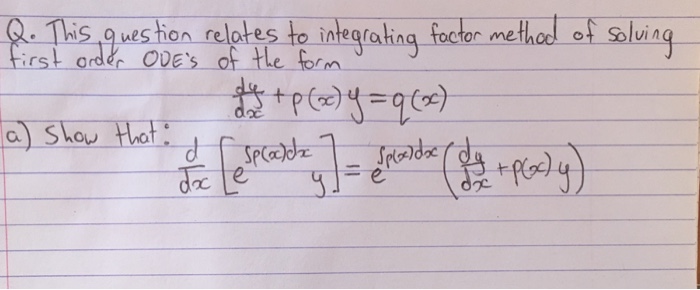 Q. This question relates to integrating factor method of solving
first order ODE's of the form
dy/dx + p(x) y = q(x)
a) Show that:
d/dx [e^∫p(x)dx y] = e^∫p(x)dx (dy/dx + p(x) y)